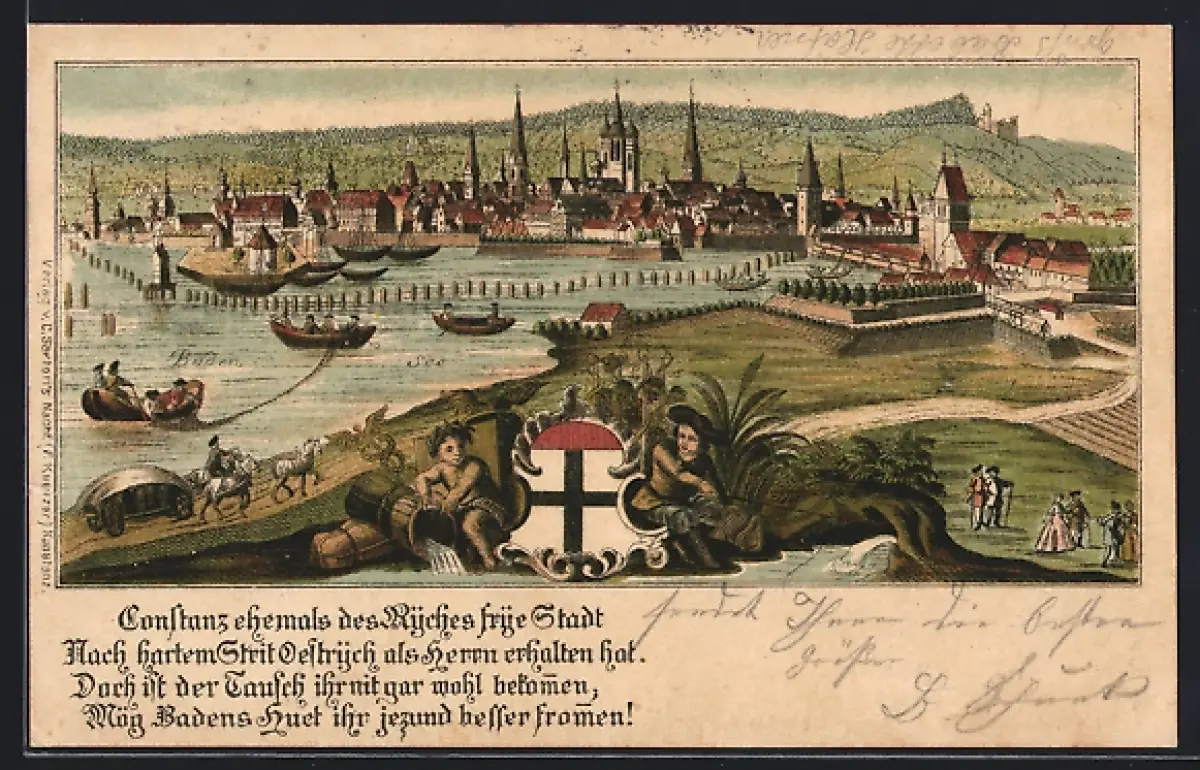 Boden See
Verlag v. C. Bartorf's Nachf. (F. Kuerzer) Konstanz.
Constanz ehemals des Rÿches frÿe Stadt
Nach hartem Strit Oestrÿch als Herrn erhalten hat.
Doch ist der Tausch ihr nit gar wohl bekom̄en,
Mög Badens Huet ihr jezund besser from̄en!
sendet Ihnen die besten
Grüße